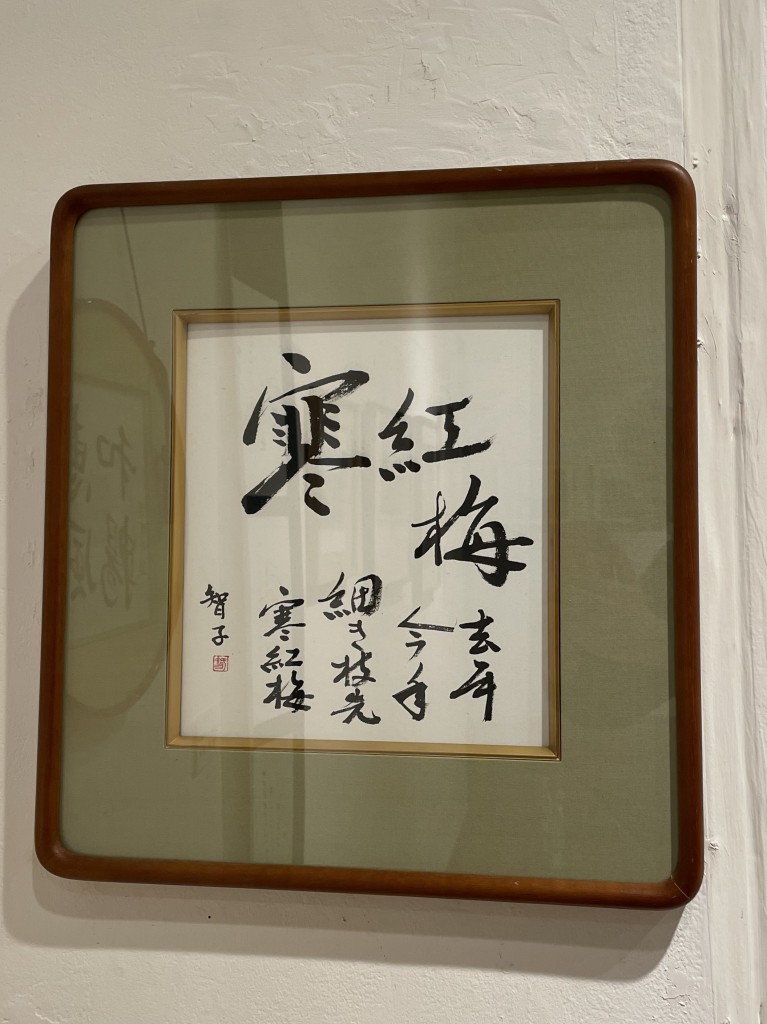 寒紅梅
去年
今年
細き枝先
寒紅梅
智子